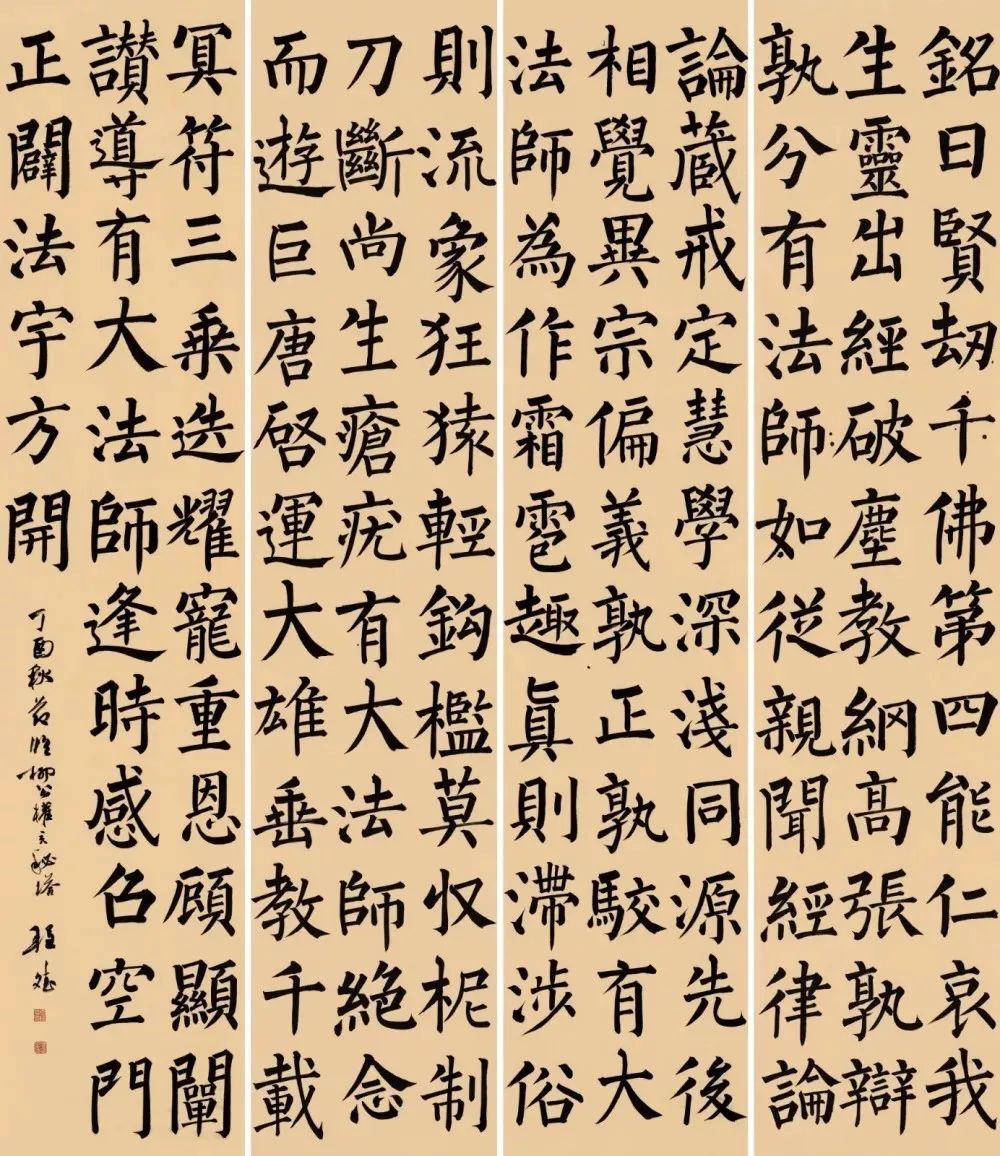 銘曰賢劫千佛第四能仁哀我
生靈出經破塵教綱高張孰辯
孰分有法師如從親聞經律論
論蔵戒定慧學深淺同源先後
相覺異宗偏義孰正孰駮有大
法師為作霜雹趣眞則滯涉俗
則流象狂猿輕鈎檻莫収柅制
刀斷尚生瘡疣有大法師絕念
而遊巨唐啓運大雄垂教千載
冥符三乗迭耀寵重恩顧顯闡
讃導有大法師逢時感召空門
正闢法宇方開
丁酉秋臨柳公權玄秘塔